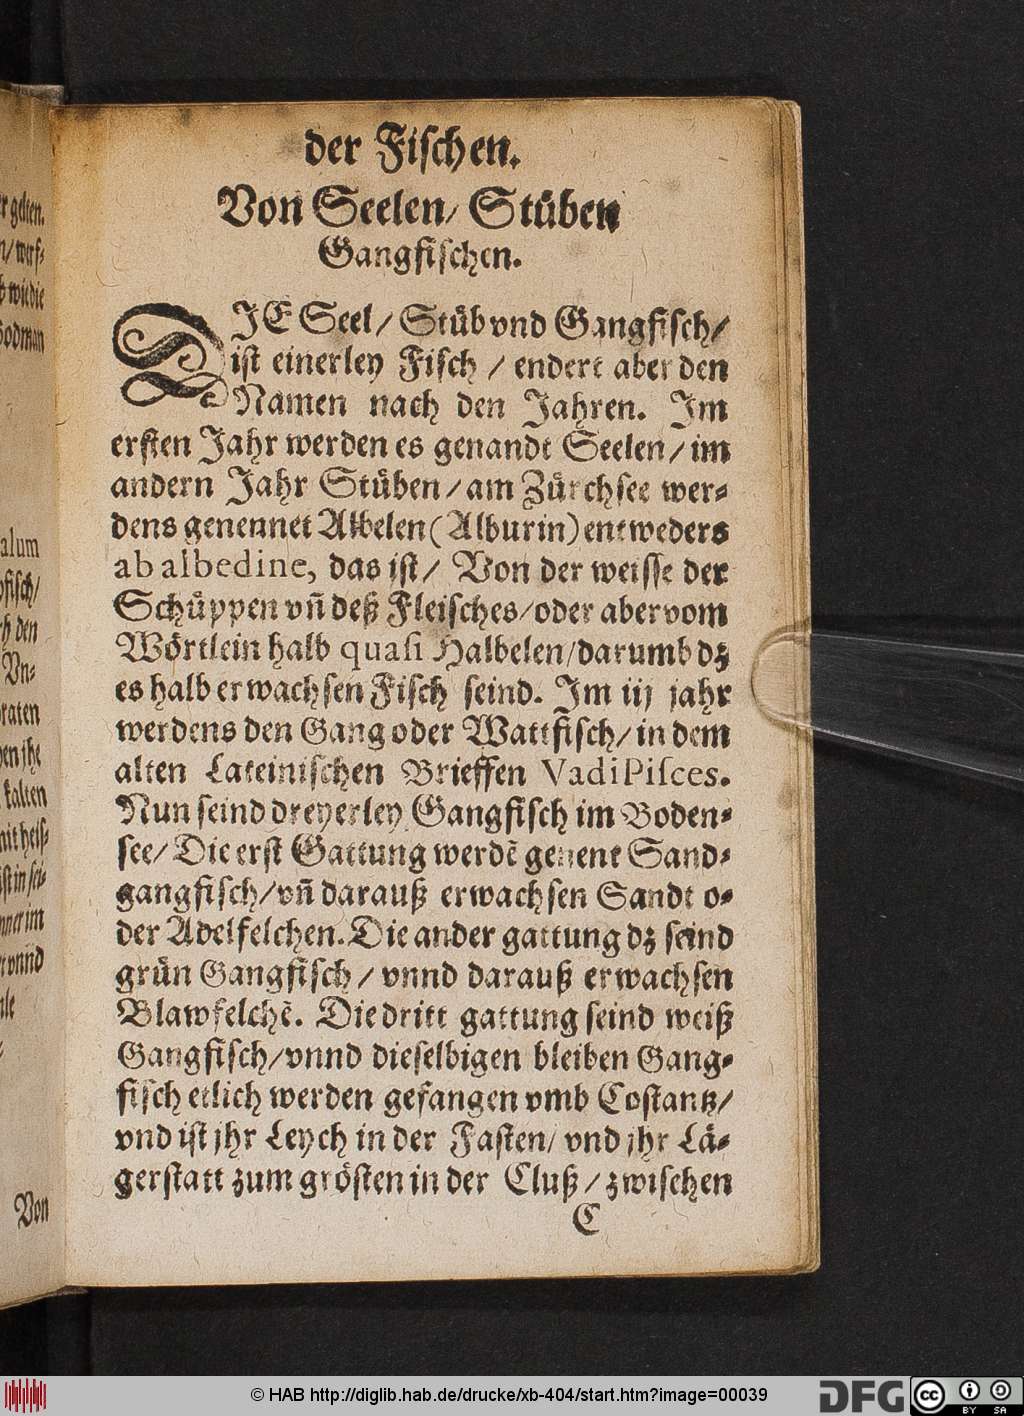 der Fischen.
Von Seelen/ Stüben
Gangfischen.
DIE Seel/ Stüb vnd Gangfisch/
ist einerley Fisch / endert aber den
Namen nach den Jahren. Im
ersten Jahr werden es genandt Seelen/ im
andern Jahr Stüben/ am Zürchsee wer-
dens genennet Albelen (Alburin) entweders
ab albedine, das ist/ Von der weisse der
Schüppen vn̄ deß Fleisches/ oder aber vom
Wörtlein halb quasi Halbelen/ darumb dz
es halb erwachsen Fisch seind. Im iij jahr
werdens den Gang oder Wattfisch/ in dem
alten Lateinischen Brieffen Vadi Pisces.
Nun seind dreyerley Gangfisch im Boden-
see/ Die erst Gattung werdē genent Sand-
gangfisch/ vn̄ darauß erwachsen Sandt o-
der Adelfelchen. Die ander gattung dz seind
grün Gangfisch/ vnnd darauß erwachsen
Blawfelchē. Die dritt gattung seind weiß
Gangfisch/ vnnd dieselbigen bleiben Gang-
fisch etlich werden gefangen vmb Costantz/
vnd ist jhr Leych in der Fasten/ vnd jhr Lä-
gerstatt zum grösten in der Cluß/ zwischen
C
er gelten.
n/ werf-
wie die
Bodman
alum
fisch/
ch den
Vn-
raten
en jhr
kalten
mit heis-
ist in sei-
im
vnnd
Von
© HAB http://diglib.hab.de/drucke/xb-404/start.htm?image=00039
DFG
cc
BY SA